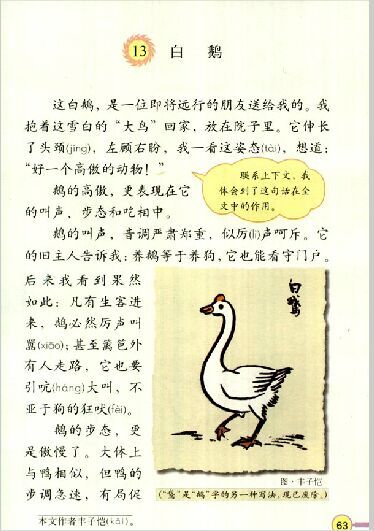 13 白 鹅
这白鹅，是一位即将远行的朋友送给我的。我
抱着这雪白的“大鸟”回家，放在院子里。它伸长
了头颈(jǐng)，左顾右盼，我一看这姿态(tài)，想道：
“好一个高傲的动物！”
联系上下文，我
体会到了这句话在全
文中的作用。
鹅的高傲，更表现在它
的叫声、步态和吃相中。
鹅的叫声，音调严肃郑重，似厉(lì)声呵斥。它
的旧主人告诉我：养鹅等于养狗，它也能看守门户。
后来我看到果然
如此：凡有生客进
来，鹅必然厉声叫
嚣(xiāo)；甚至篱笆外
有人走路，它也要
引吭(háng)大叫，不
亚于狗的狂吠(fèi)。
鹅的步态，更
是傲慢了。大体上
与鸭相似，但鸭的
步调急速，有局促
白鵞
图·丰子恺
(“鵞”是“鹅”字的另一种写法，现已废除。)
本文作者丰子恺(kǎi)。
63